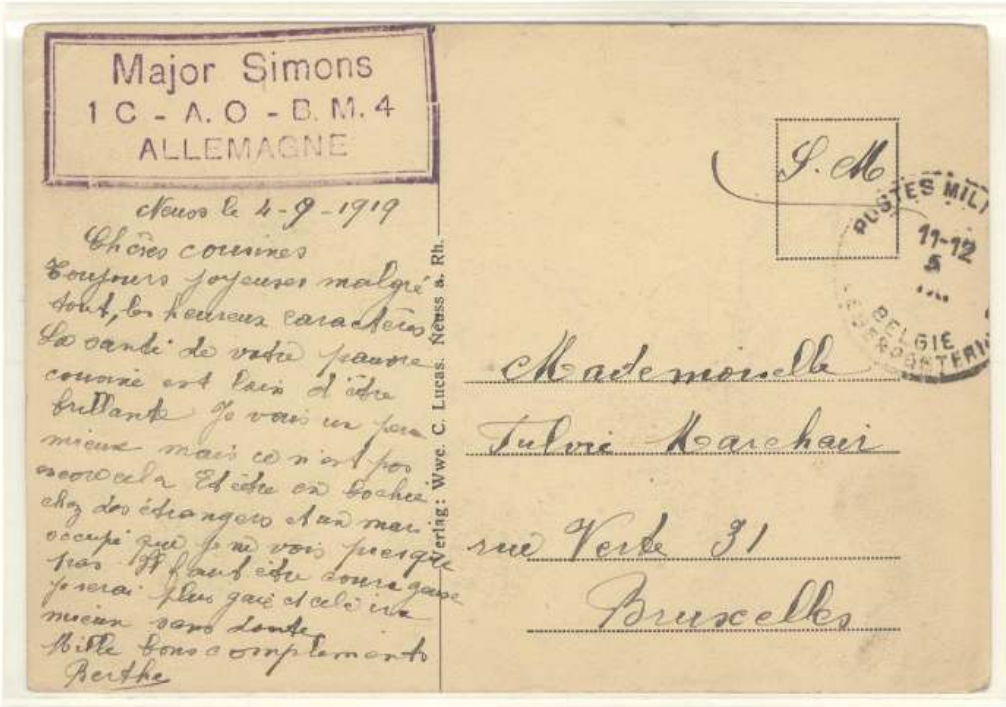 Major Simons
1 C - A. O - B. M. 4
ALLEMAGNE
Neuss le 4-9-1919
Chères cousines
Toujours joyeuses malgré
tout, les heureux caractères
La santé de votre pauvre
cousine est loin d'être
brillante Je vais un peu
mieux mais ce n'est pas
encore cela Et être en bochie
chez des étrangers et un mari
occupé que je ne vois presque
pas Il faut être courageuse
je serai plus gaie et cela ira
mieux sans doute
Mille bons compliments
Berthe
Verlag: Wwe. C. Lucas. Neuss a. Rh.
S. M
POSTES MILI
11-12
5
BELGIE
LEGERPOSTERIJ
Mademoiselle
Fulvie Marchair
rue Verte 31
Bruxelles